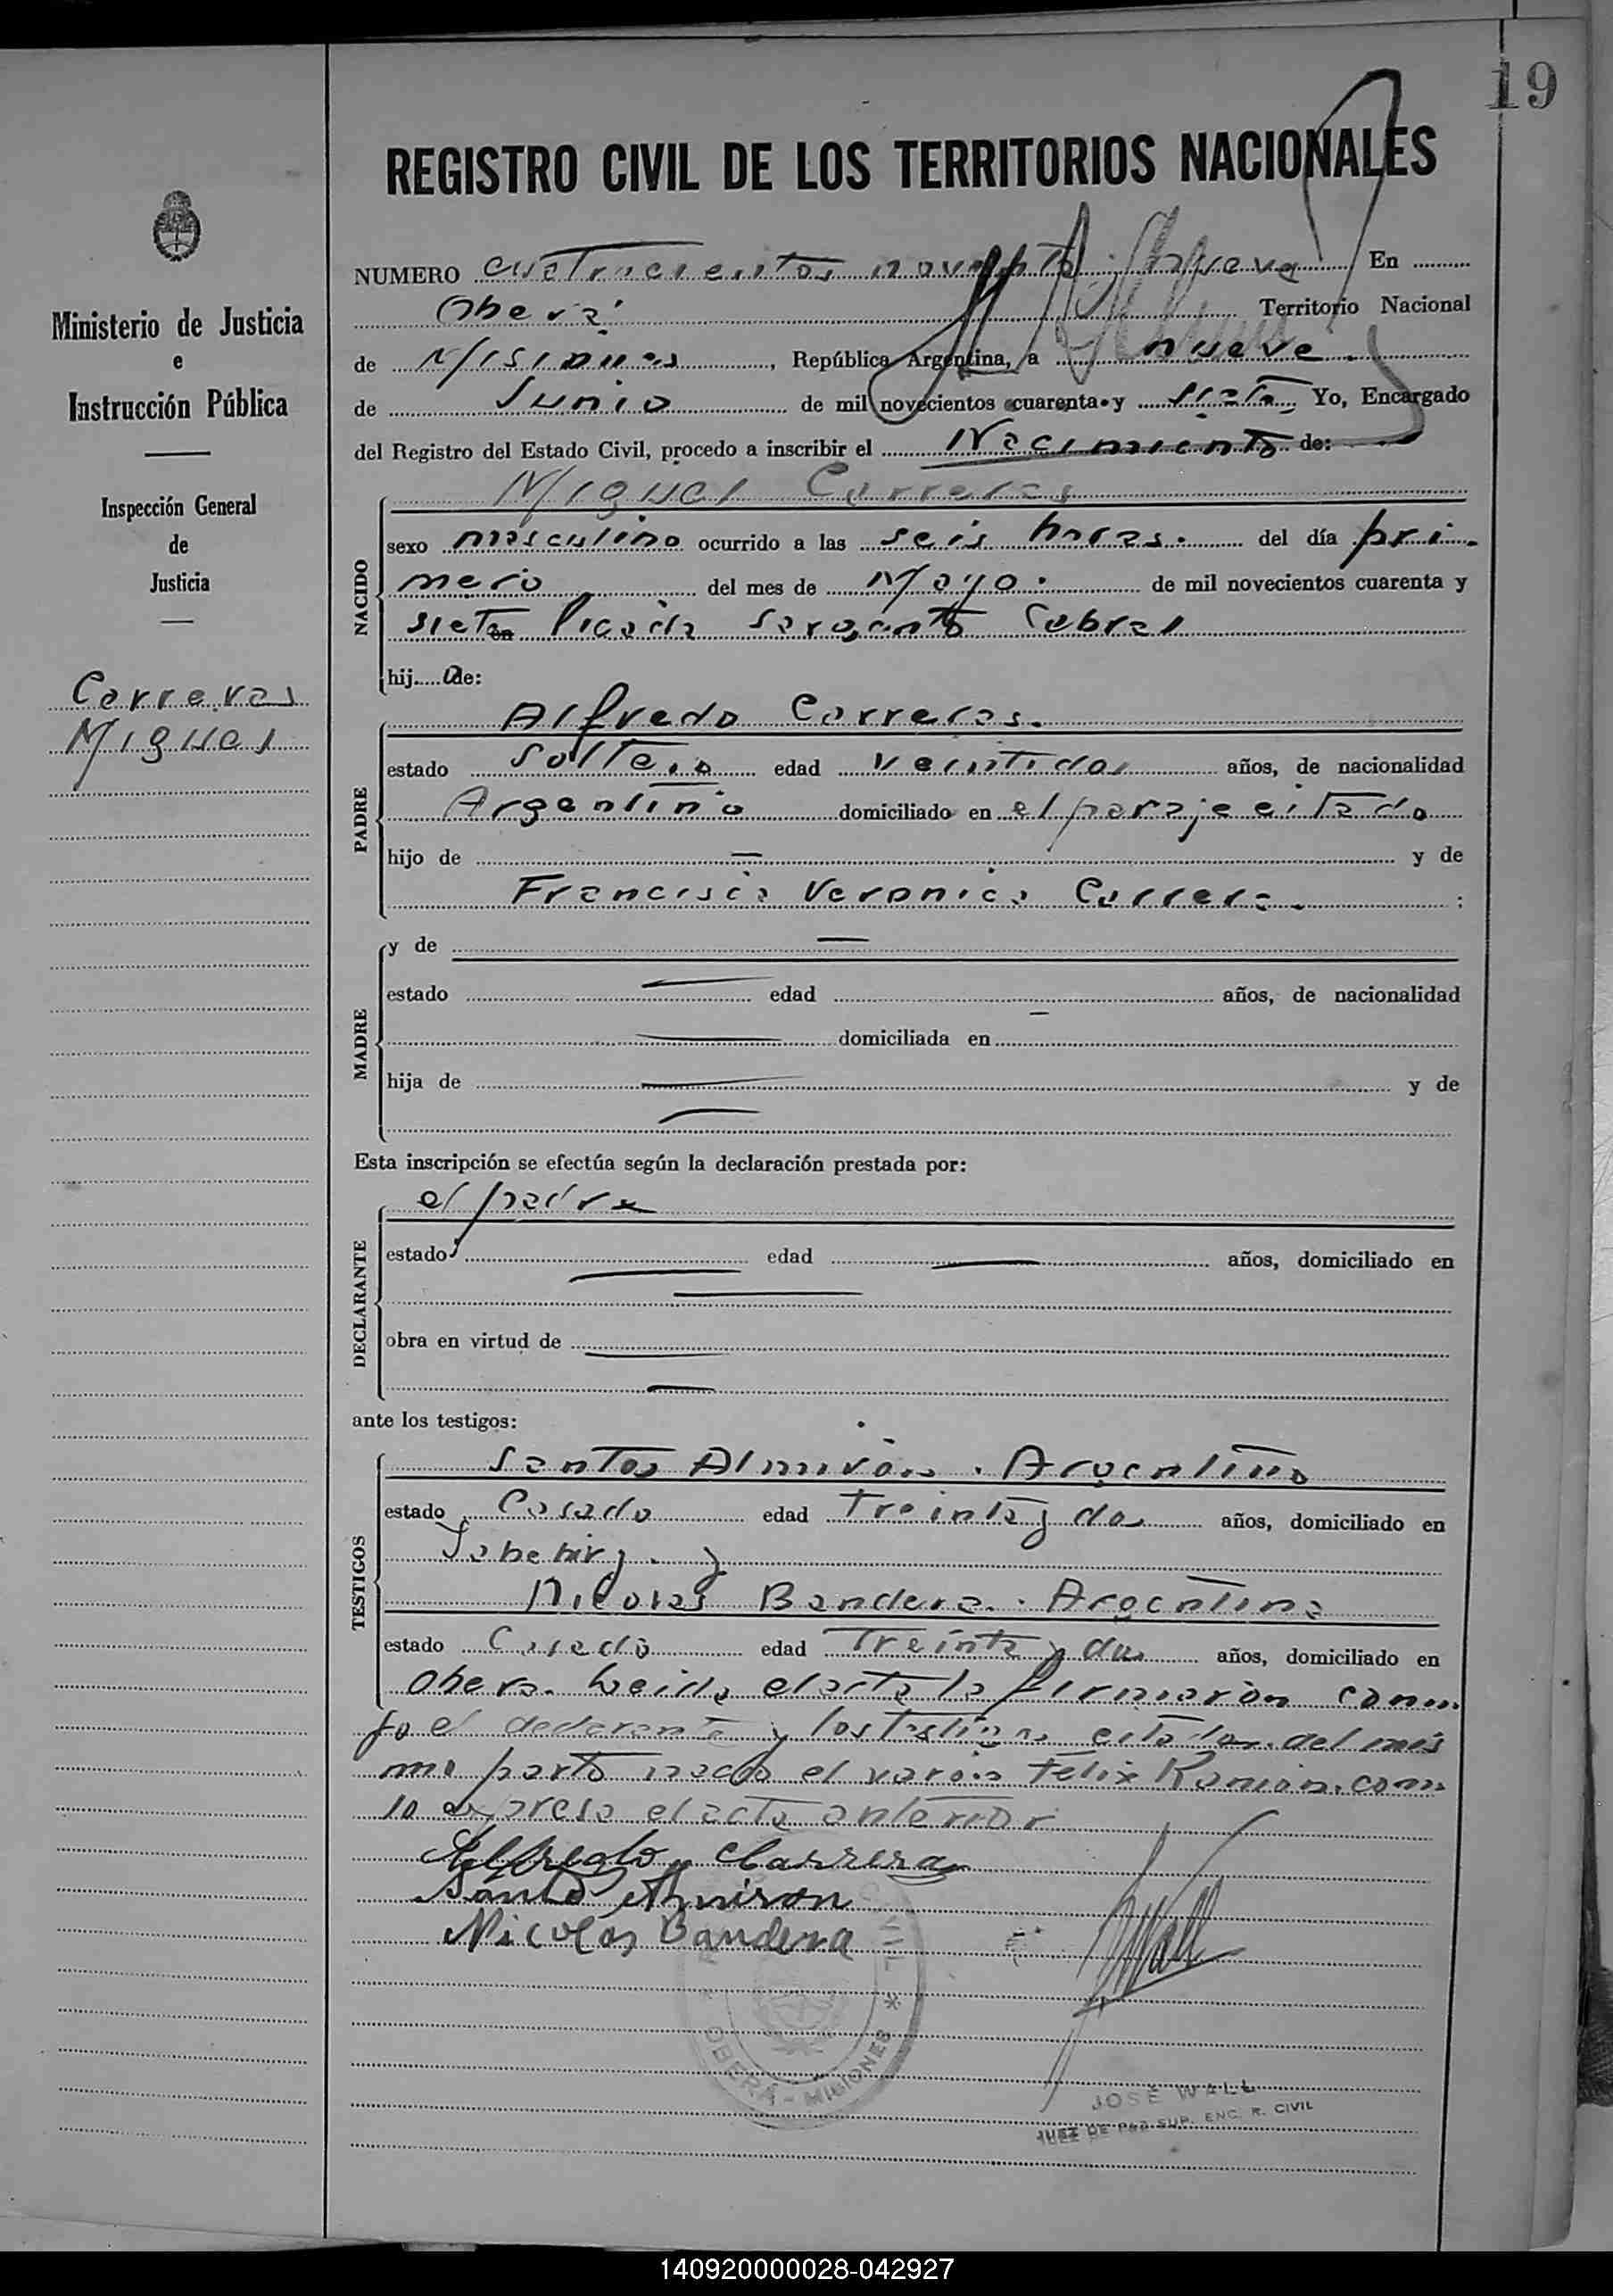 19
REGISTRO CIVIL DE LOS TERRITORIOS NACIONALES
Ministerio de Justicia
e
Instrucción Pública
Inspección General
de
Justicia
Carreras
Miguel
NUMERO cuatrocientos noventa y nueve En
Oberá Territorio Nacional
de Misiones, República Argentina, a nueve
de Junio de mil novecientos cuarenta y siete, Yo, Encargado
del Registro del Estado Civil, procedo a inscribir el Nacimiento de:
NACIDO
Miguel Carreras
sexo masculino ocurrido a las seis horas. del día pri-
mero del mes de Mayo. de mil novecientos cuarenta y
siete en Picada Sargento Cabral
hijo de:
PADRE
Alfredo Carreras.
estado Soltero edad veintidos años, de nacionalidad
Argentino domiciliado en el paraje citado
hijo de — y de
Francisca Veronica Carrera. ;
MADRE
y de —
estado — edad — años, de nacionalidad
— domiciliada en
hija de — y de
—
Esta inscripción se efectúa según la declaración prestada por:
DECLARANTE
el padre
estado — edad — años, domiciliado en
—
obra en virtud de —
—
ante los testigos:
TESTIGOS
Santos Almirón. Argentino
estado Casado edad Treinta y dos años, domiciliado en
y
Nicolas Bandera. Argentino
estado Casado edad Treinta y dos años, domiciliado en
Obera. Leida el acta la firmaron conm
go el declarante y los testigos citados. del mis
mo parto nacio el varón Felix Ramón. com
lo expresa el acta anterior
Alfredo Carrera
Santo Almiron
Nicolas Bandera
JWall
OBERÁ - MISIONES
JOSÉ WALL
JUEZ DE PAZ SUP. ENC. R. CIVIL
140920000028-042927